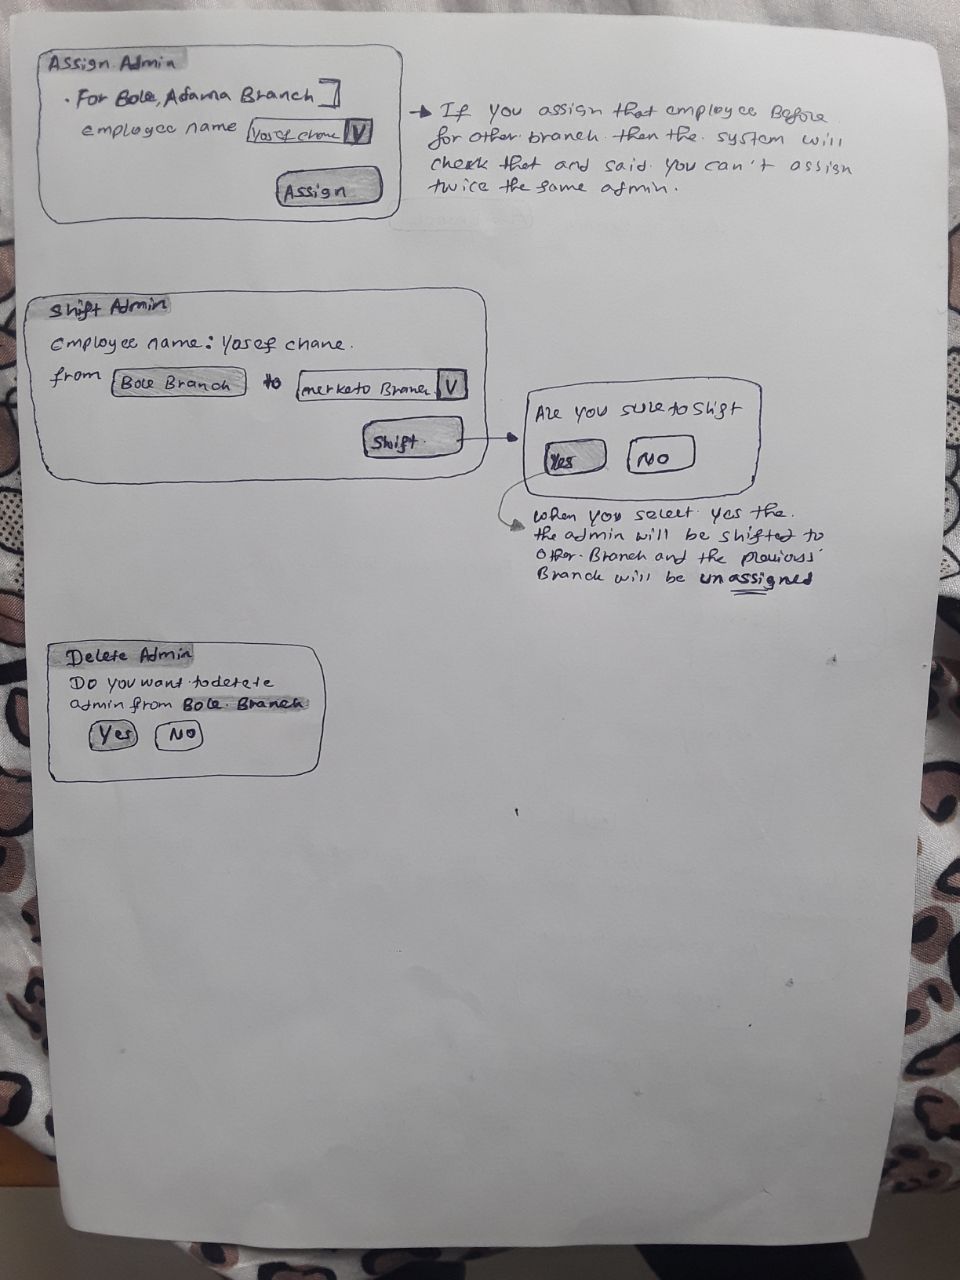 Assign Admin
. For Bole, Adama Branch ]
employee name Yosef chane V
Assign
→ If you assign that employee Before
for other branch then the system will
check that and said you can't assign
twice the same admin.
Shift Admin
employee name: Yosef chane.
from Bole Branch to merkato Branch V
Shift
Are you sure to Shift
Yes NO
when you select yes the.
the admin will be shifted to
Other Branch and the previous
Branch will be unassigned
Delete Admin
Do you want to delete
admin from Bole Branch
Yes NO